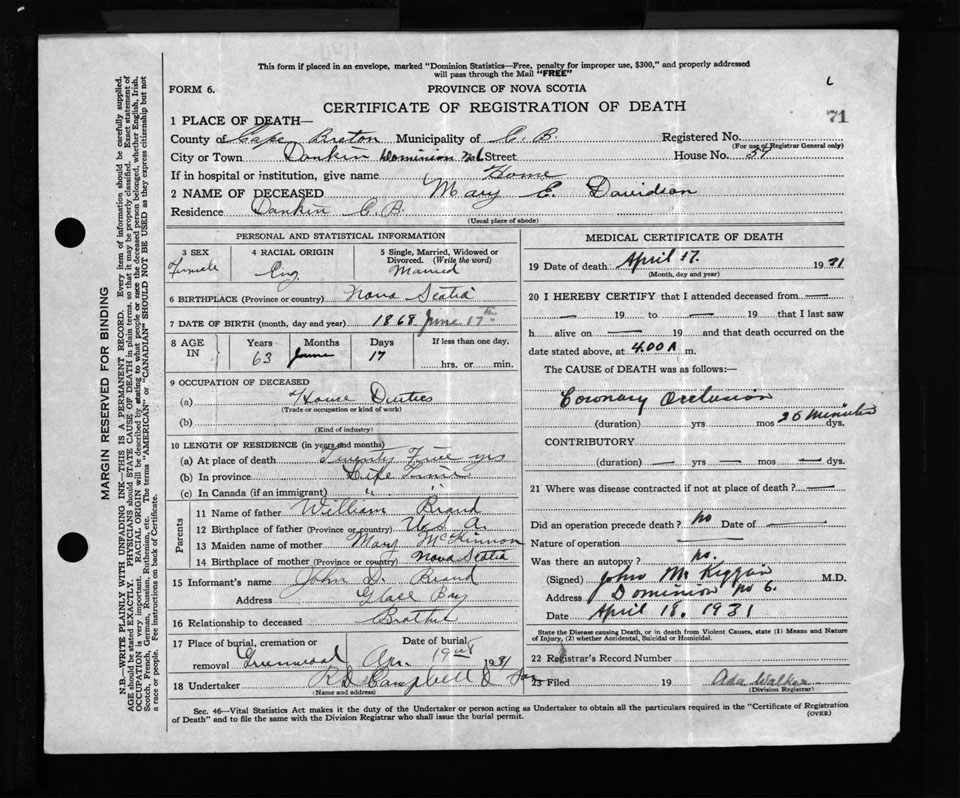 This form if placed in an envelope, marked "Dominion Statistics—Free, penalty for improper use, $300," and properly addressed
will pass through the Mail "FREE"
FORM 6.
PROVINCE OF NOVA SCOTIA
CERTIFICATE OF REGISTRATION OF DEATH
71
1 PLACE OF DEATH—
County of Cape Breton Municipality of C. B. Registered No.
(For use of Registrar General only)
City or Town Donkin Dominion No 6 Street House No. 57
If in hospital or institution, give name Home
2 NAME OF DECEASED Mary E. Davidson
Residence Donkin C. B.
(Usual place of abode)
PERSONAL AND STATISTICAL INFORMATION
3 SEX
Female
4 RACIAL ORIGIN
Eng
5 Single, Married, Widowed or
Divorced. (Write the word)
Married
6 BIRTHPLACE (Province or country) Nova Scotia
7 DATE OF BIRTH (month, day and year) 1868 June 17th
8 AGE
IN
Years
63
Months
June
Days
17
If less than one day,
hrs. or min.
9 OCCUPATION OF DECEASED
(a) House Duties
(Trade or occupation or kind of work)
(b)
(Kind of industry)
10 LENGTH OF RESIDENCE (in years and months)
(a) At place of death Twenty Five yrs
(b) In province Life Time
(c) In Canada (if an immigrant) " "
Parents
11 Name of father William Brand
12 Birthplace of father (Province or country) U. S. A.
13 Maiden name of mother Mary McKinnon
14 Birthplace of mother (Province or country) Nova Scotia
15 Informant's name John D. Brand
Address Glace Bay
16 Relationship to deceased Brother
17 Place of burial, cremation or
removal Greenwood
Date of burial
Apr. 19 1931
18 Undertaker R D Campbell & Son
(Name and address)
MEDICAL CERTIFICATE OF DEATH
19 Date of death April 17. 1931
(Month, day and year)
20 I HEREBY CERTIFY that I attended deceased from —
— 19 to — 19 that I last saw
h alive on — 19 and that death occurred on the
date stated above, at 4.00 A m.
The CAUSE of DEATH was as follows:—
Coronary Occlusion
(duration) yrs mos 25 minutes dys.
CONTRIBUTORY
(duration) — yrs — mos — dys.
21 Where was disease contracted if not at place of death? —
Did an operation precede death? no Date of —
Nature of operation —
Was there an autopsy? no.
(Signed) John McKiggan M.D.
Address Dominion no 6.
Date April 18, 1931
State the Disease causing Death, or in death from Violent Causes, state (1) Means and Nature
of Injury, (2) whether Accidental, Suicidal or Homicidal.
22 Registrar's Record Number
23 Filed 19 Ada Walker
(Division Registrar)
Sec. 46—Vital Statistics Act makes it the duty of the Undertaker or person acting as Undertaker to obtain all the particulars required in the "Certificate of Registration
of Death" and to file the same with the Division Registrar who shall issue the burial permit.
(OVER)
MARGIN RESERVED FOR BINDING
N.B.—WRITE PLAINLY WITH UNFADING INK—THIS IS A PERMANENT RECORD. Every item of information should be carefully supplied.
AGE should be stated EXACTLY. PHYSICIANS should STATE CAUSE OF DEATH in plain terms, so that it may be properly classified. Exact statement of
OCCUPATION is very important. RACIAL ORIGIN will be described by stating to what people or race the deceased person belonged, whether English, Irish,
Scotch, French, German, Russian, Ruthenian, etc. The terms "AMERICAN" or "CANADIAN" SHOULD NOT BE USED as they express citizenship but not
a race or people. See instructions on back of Certificate.